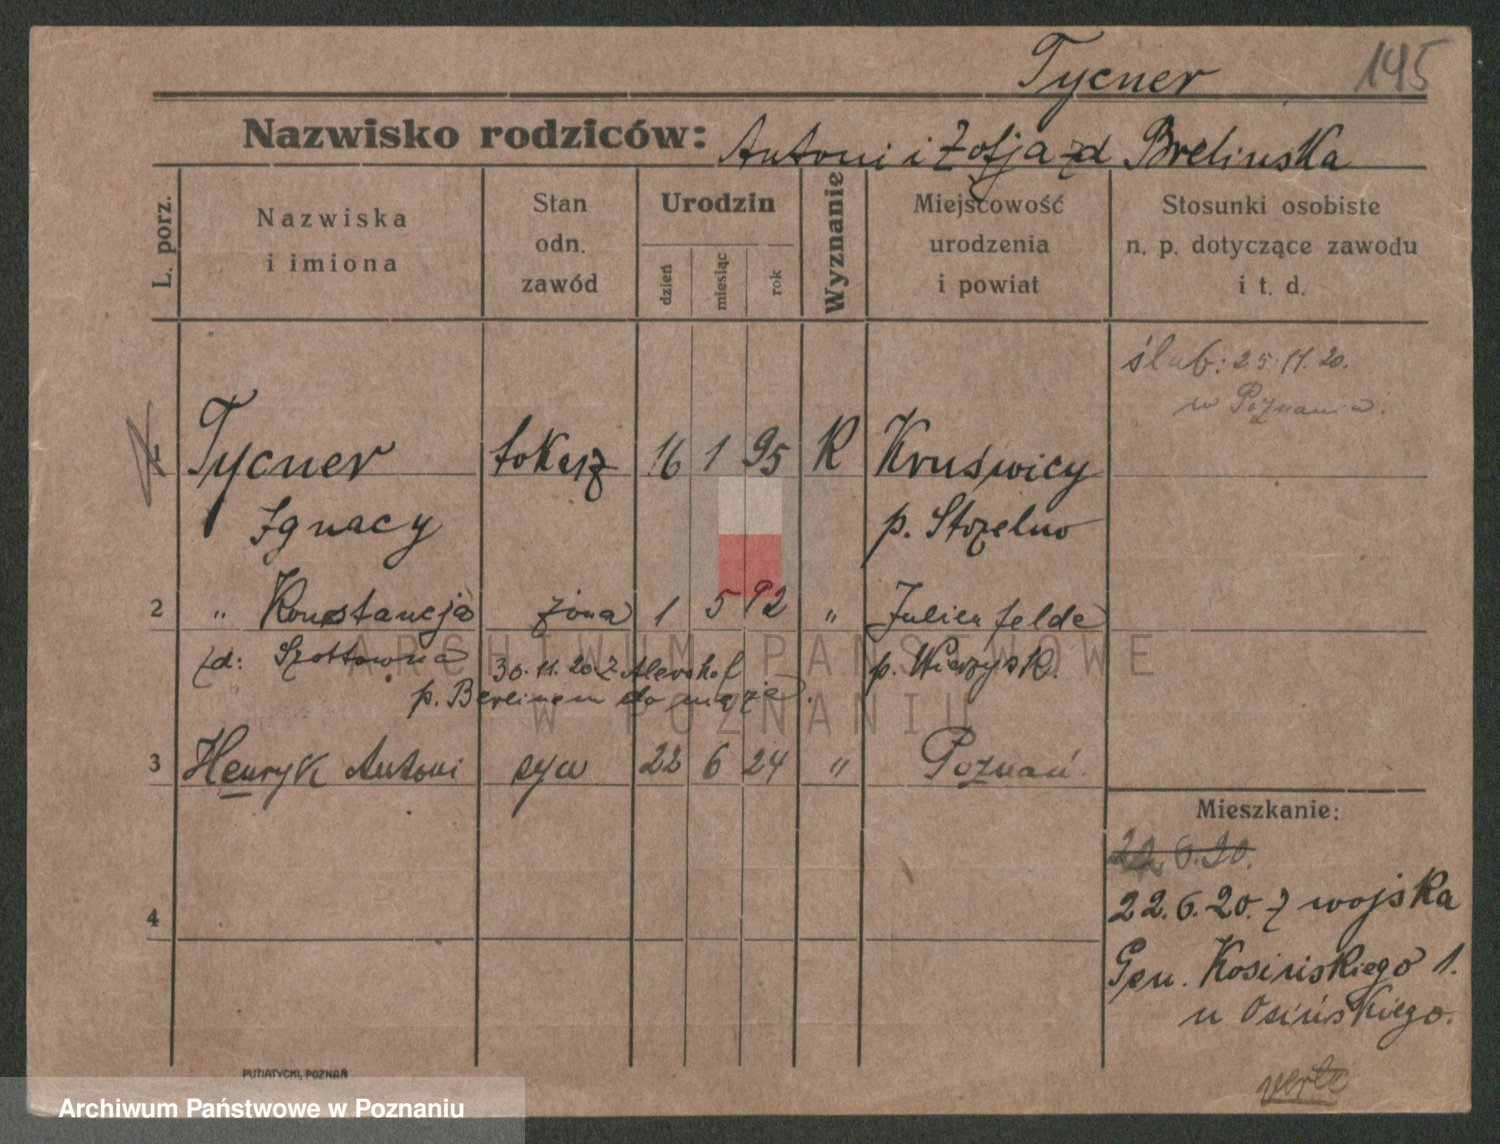 Tycner 145
Nazwisko rodziców: Antoni i Zofja zd Brelinska
L. porz.
Nazwiska
i imiona
Stan
odn.
zawód
Urodzin
dzień
miesiąc
rok
Wyznanie
Miejscowość
urodzenia
i powiat
Stosunki osobiste
n. p. dotyczące zawodu
i t. d.
ślub: 25.11.20.
w Poznaniu.
1 Tycner tokarz 16 1 95 R Kruświcy
Ignacy p. Strzelno
2 " Konstancja żona 1 5 92 " Julienfelde
zd: Szottówna 30.11.20 z p. Wirzysk.
p. Berlinem do męża.
3 Henryk Antoni syn 22 6 24 " Poznań
Mieszkanie:
22.6.20.
4
22.6.20. z wojska
Gen. Kosińskiego 1.
u Osińskiego.
verte
PUTIATYCKI, POZNAŃ
ARCHIWUM PAŃSTWOWE
W POZNANIU
Archiwum Państwowe w Poznaniu